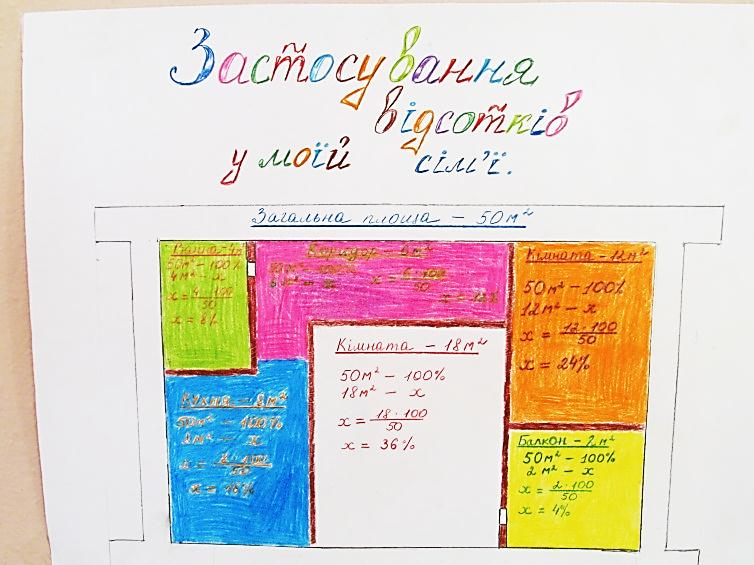 Застосування
відсотків
у моїй сім'ї.
Загальна площа – 50м²
Ванна – 4м²
50м² – 100%
4м² – x
x = 4·100/50
x = 8%
Коридор – 6м²
50м² – 100%
6м² – x
x = 6·100/50
x = 12%
Кімната – 12м²
50м² – 100%
12м² – x
x = 12·100/50
x = 24%
Кімната – 18м²
50м² – 100%
18м² – x
x = 18·100/50
x = 36%
Кухня – 8м²
50м² – 100%
8м² – x
x = 8·100/50
x = 16%
Балкон – 2м²
50м² – 100%
2м² – x
x = 2·100/50
x = 4%